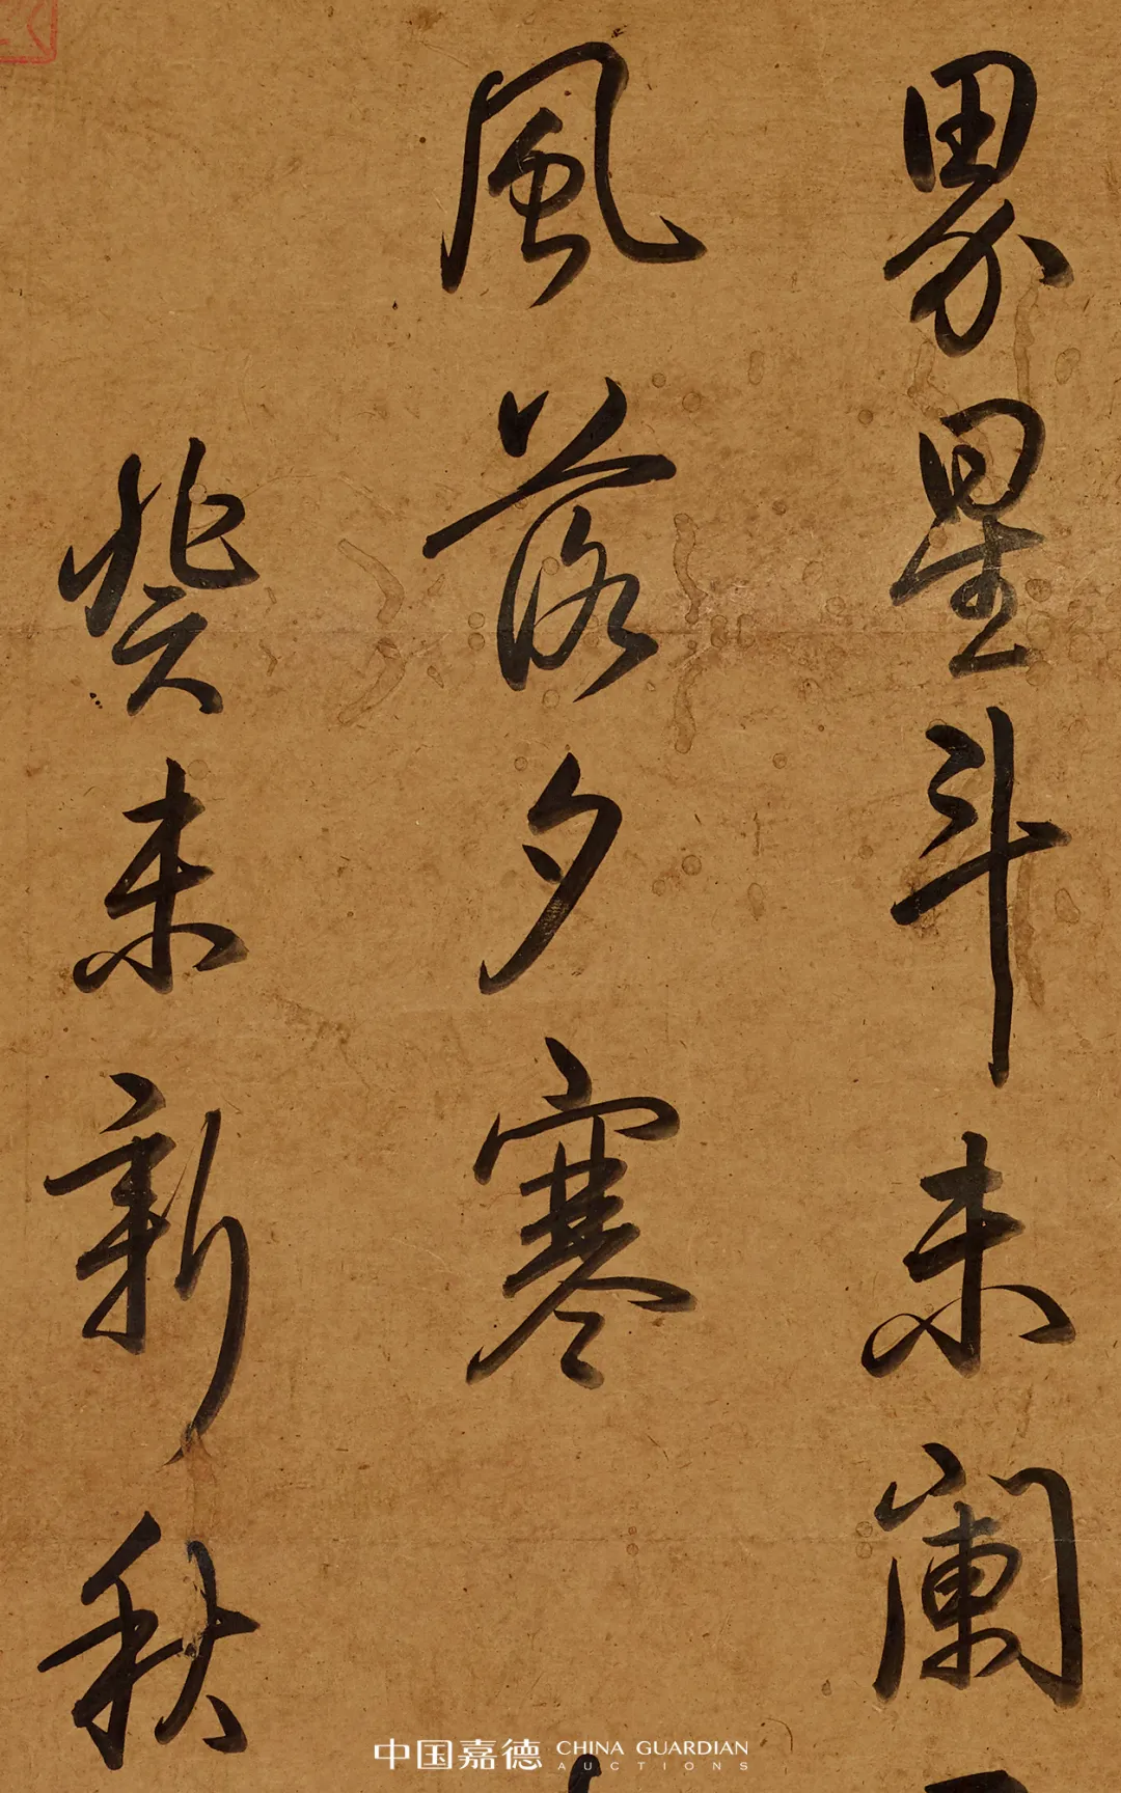 界星斗未闌
風落夕寒
癸未新秋
中国嘉德 CHINA GUARDIAN
AUCTIONS